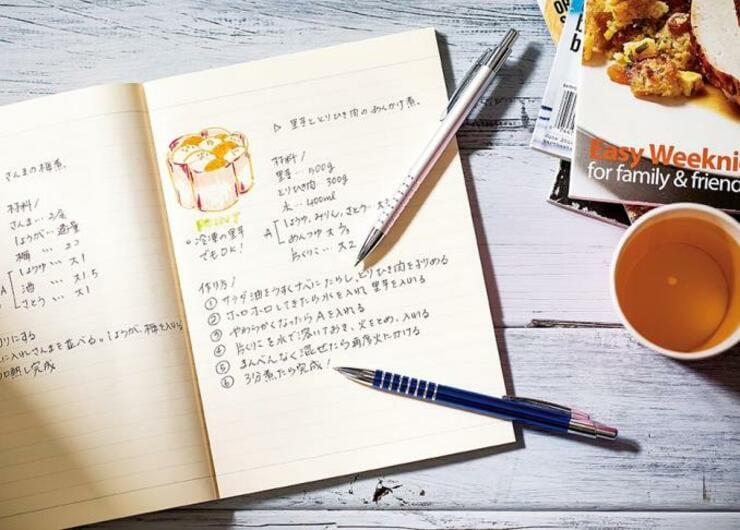 さんまの梅煮。
材料/
さんま…2尾
しょうが…適量
梅…2コ
A
しょうゆ…大1
酒…大1.5
さとう…大1
りにする
に入れさんまを並べる。しょうが、梅を入れ
し完成
▷ 里芋ととりひき肉のあんかけ煮。
材料/
里芋…500g
とりひき肉…300g
水…400ml
A
しょうゆ、みりん、さとう…大
めんつゆ 大
片くりこ…大2
POINT
冷凍の里芋
でもOK!
作り方/
① サラダ油をうすくナベにたらし、とりひき肉を炒める
② ホロホロしてきたら水を入れ里芋を入れる
③ やわらかくなったらAを入れる
④ 片くりこを水で溶いておき、火をとめ、入れる
⑤ まんべんなく混ぜたら再度火にかける
⑥ 3分煮たら完成!
Easy Weekni
for family & friend